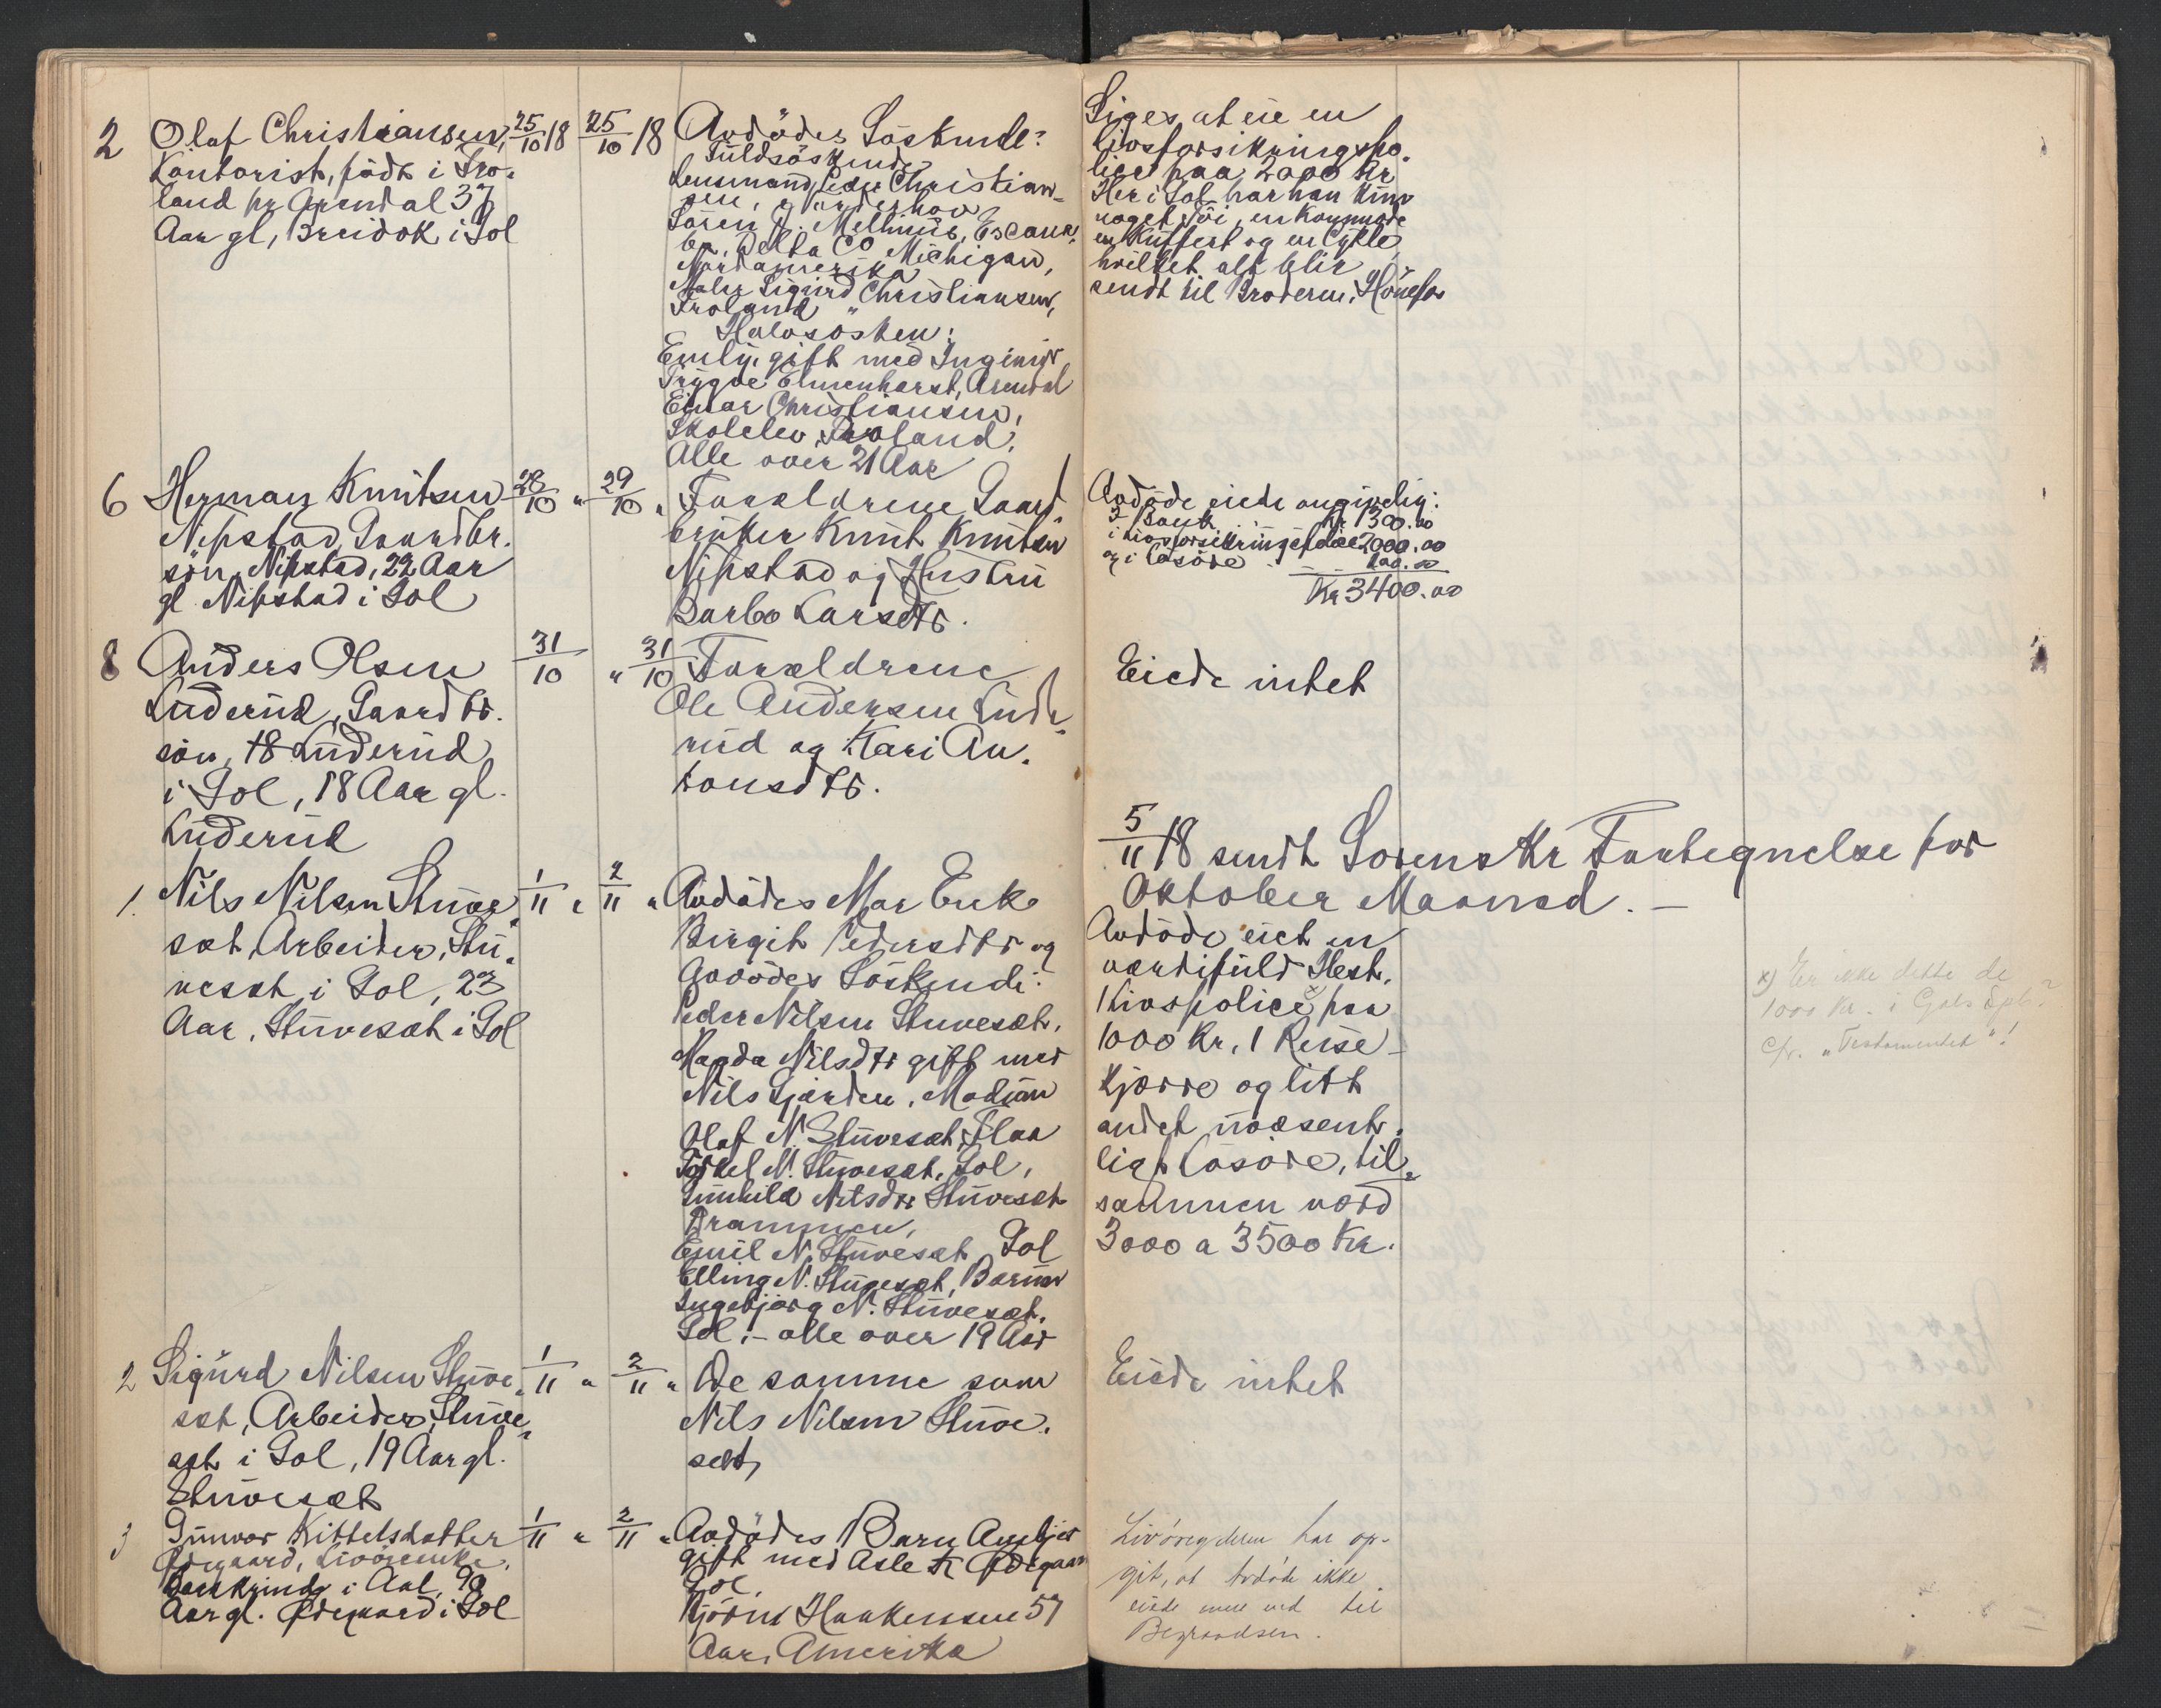 2 Olaf Christiansen, 25/10 18 25/10 18
Kontorist, född i Fro-
land pr Arendal 37
Aar gl, Breidok i Gol
Avdödes Söskende:
Fuldsöskende
Lensmand Peder Christian-
sen, Norderhov
Sören C. Mellinus, Escana-
ba, Delta Co Michigan,
Nordamerika
Maler Sigurd Christiansen,
Froland "
Halvsösken:
Emly, gift med Ingeniör
Trygve Emenhorst, Arendal
Einar Christiansen,
Skoleelev, Froland.
Alle over 21 Aar
Siges at eie en
livsforsikringspo-
lice paa 2000 Kr
Her i Gol har han kun
noget töi, en Kommode
en Kuffert og en Cykle,
hvilket alt blir
sendt til Broderen, Hönefos
6 Herman Knutsen 28/10 " 29/10 "
Nipstad, Gaardbr.
sön, Nipstad, 22 Aar
gl Nipstad i Gol
Forældrene Gaard-
bruker Knut Knutsen
Nipstad og Hustru
Barbo Larsdtr.
Avdöde eiede angivelig:
I Bank Kr 1300.00
i Livsforsikringspolice 2000.00
og i Lösöre - - 100.00
Kr 3400.00
8 Anders Olsen 31/10 " 31/10
Luderud, Gaardbr.
sön, 18 Luderud
i Gol, 18 Aar gl.
Luderud
Forældrene
Ole Andersen Lude-
rud og Kari An-
tonsdtr.
Eiede intet
5/11 18 sendt Sorenskr Fortegnelse for
Oktober Maaned. -
1. Nils Nilsen Stuve- 1/11 " 2/11 "
sæt, Arbeider, Stu-
vesæt i Gol, 23
Aar, Stuvesæt i Gol
Avdödes Mor Enke
Birgit Pedersdtr og
Avdödes Söskende:
Peder Nilsen Stuvesæt,
Magda Nilsdtr gift med
Nils Gjarden, Modum
Olaf N. Stuvesæt, Flaa
Torkel N. Stuvesæt, Gol,
Gunhild Nilsdtr Stuvesæt
Drammen,
Emil N. Stuvesæt Gol
Elling N. Stuvesæt, Bærum
Ingebjörg N. Stuvesæt,
Gol, - alle over 19 Aar
Avdöde eiet en
værdifuld Hest,
1 Livspolice x) paa
1000 Kr, 1 Reise-
kjærre og litt
andet uvæsent-
ligt lösöre, til-
sammen værd
3000 a 3500 Kr.
x) Er ikke dette de
1000 Kr. i Gols Spb.?
Cfr. "Testamentet"!
2 Sigurd Nilsen Stuve- 1/11 " 2/11 "
sæt, Arbeider, Stuve-
sæt i Gol, 19 Aar gl.
Stuvesæt
De samme som
Nils Nilsen Stuve-
sæt,
Eiede intet
3 Gunvor Kittelsdatter 1/11 " 2/11 "
Ødegaard,
i Aal, 90
Aar gl. Ødegaard i Gol
Avdödes Barn Ambjör
gift med Asle K Ødegaard
Gol,
Björn Haakensen 57
Aar, Amerika
Livöregderen har op-
git, at Avdöde ikke
eiede mere end til
Begravelsen.